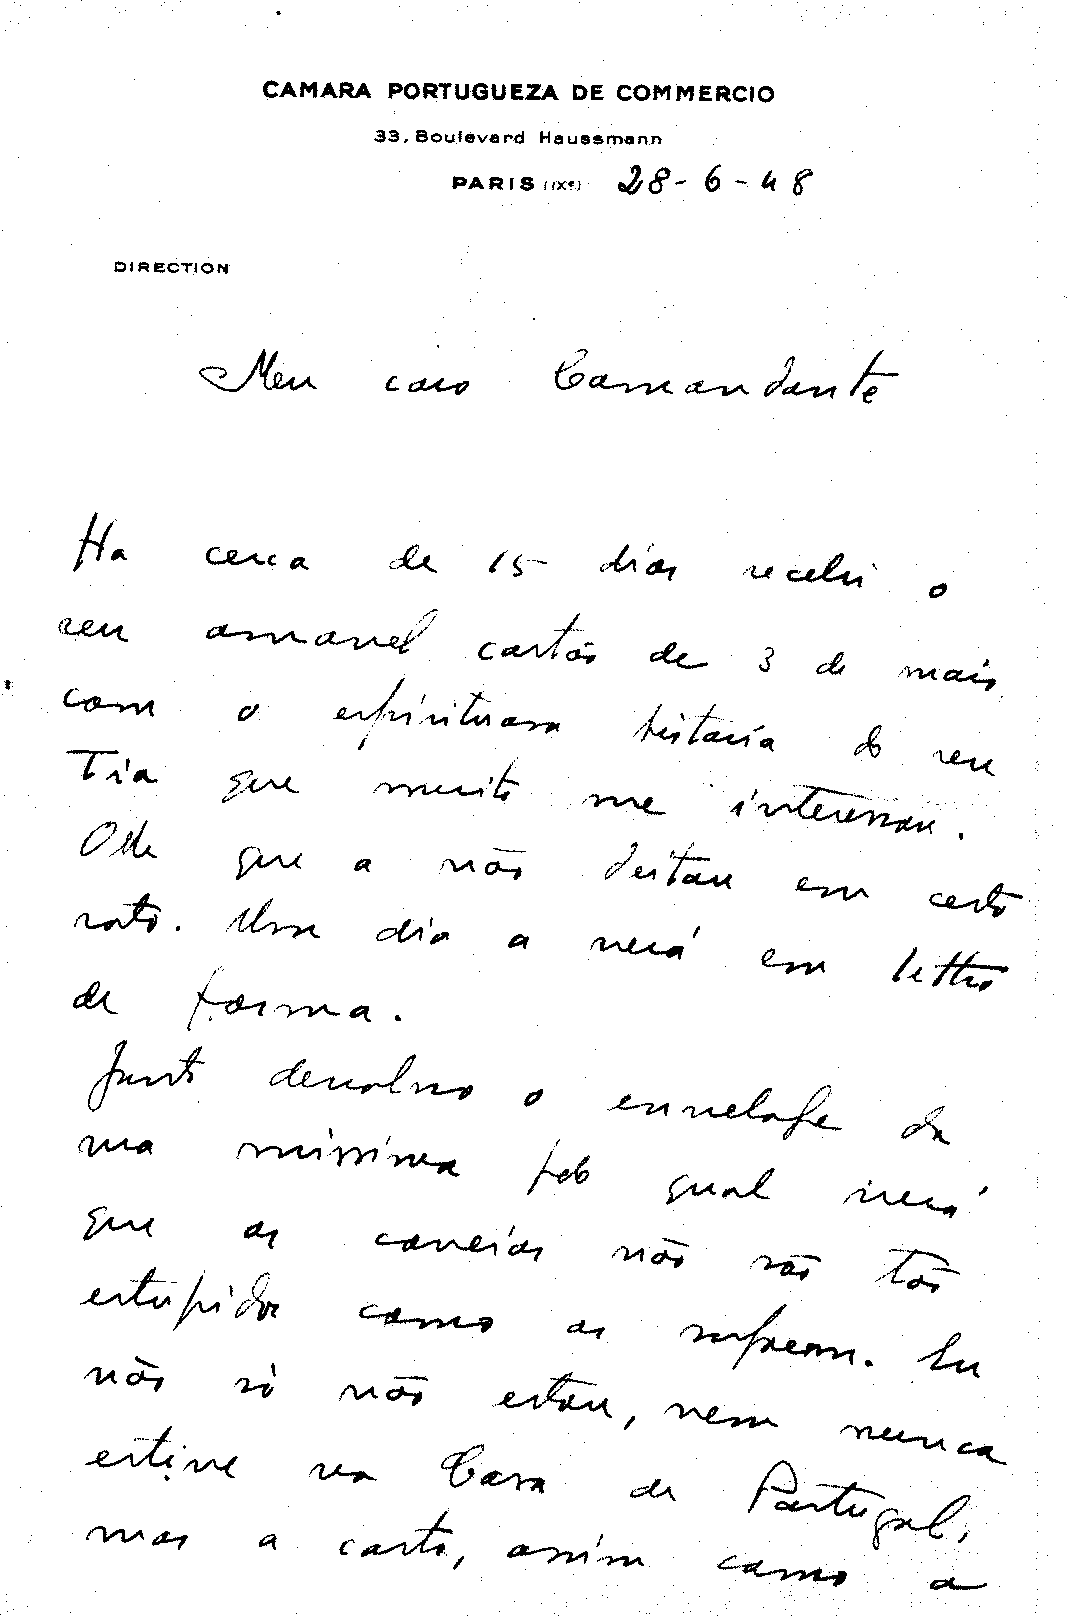 CAMARA PORTUGUEZA DE COMMERCIO
33, Boulevard Haussmann
PARIS (IXe) 28-6-48
DIRECTION
Meu caro Comandante
Ha cerca de 15 dias recebi o
seu amavel cartão de 3 de maio
com a espirituosa historia do seu
Tia que muito me interessou.
Olhe que a não deitou em cesto
roto. Um dia a verá em lettra
de forma.
Junto devolvo o envelope da
sua missiva pelo qual verá
que as coveiros não são tão
estupidos como os supoem. Eu
não só não estou, nem nunca
estive na Casa de Portugal,
mas a carta, assim como a